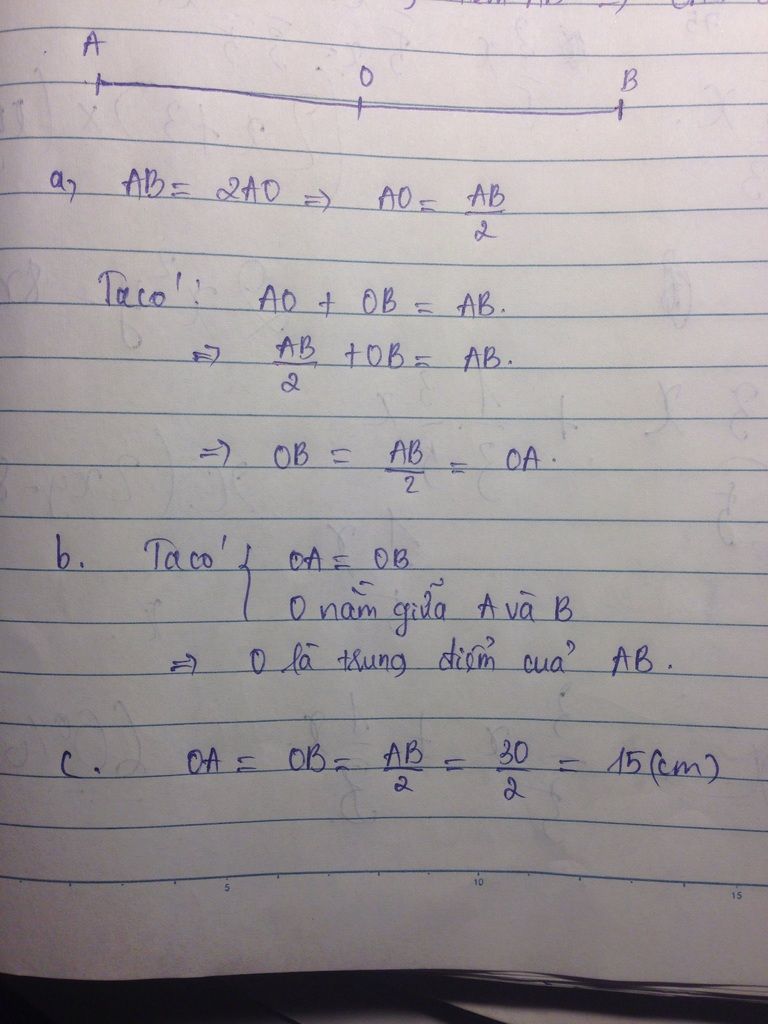 A O B
a, AB = 2AO => AO = AB/2
Ta có: AO + OB = AB.
=> AB/2 + OB = AB.
=> OB = AB/2 = OA.
b. Ta có { OA = OB
O nằm giữa A và B
=> O là trung điểm của AB.
c. OA = OB = AB/2 = 30/2 = 15 (cm)
5 10 15